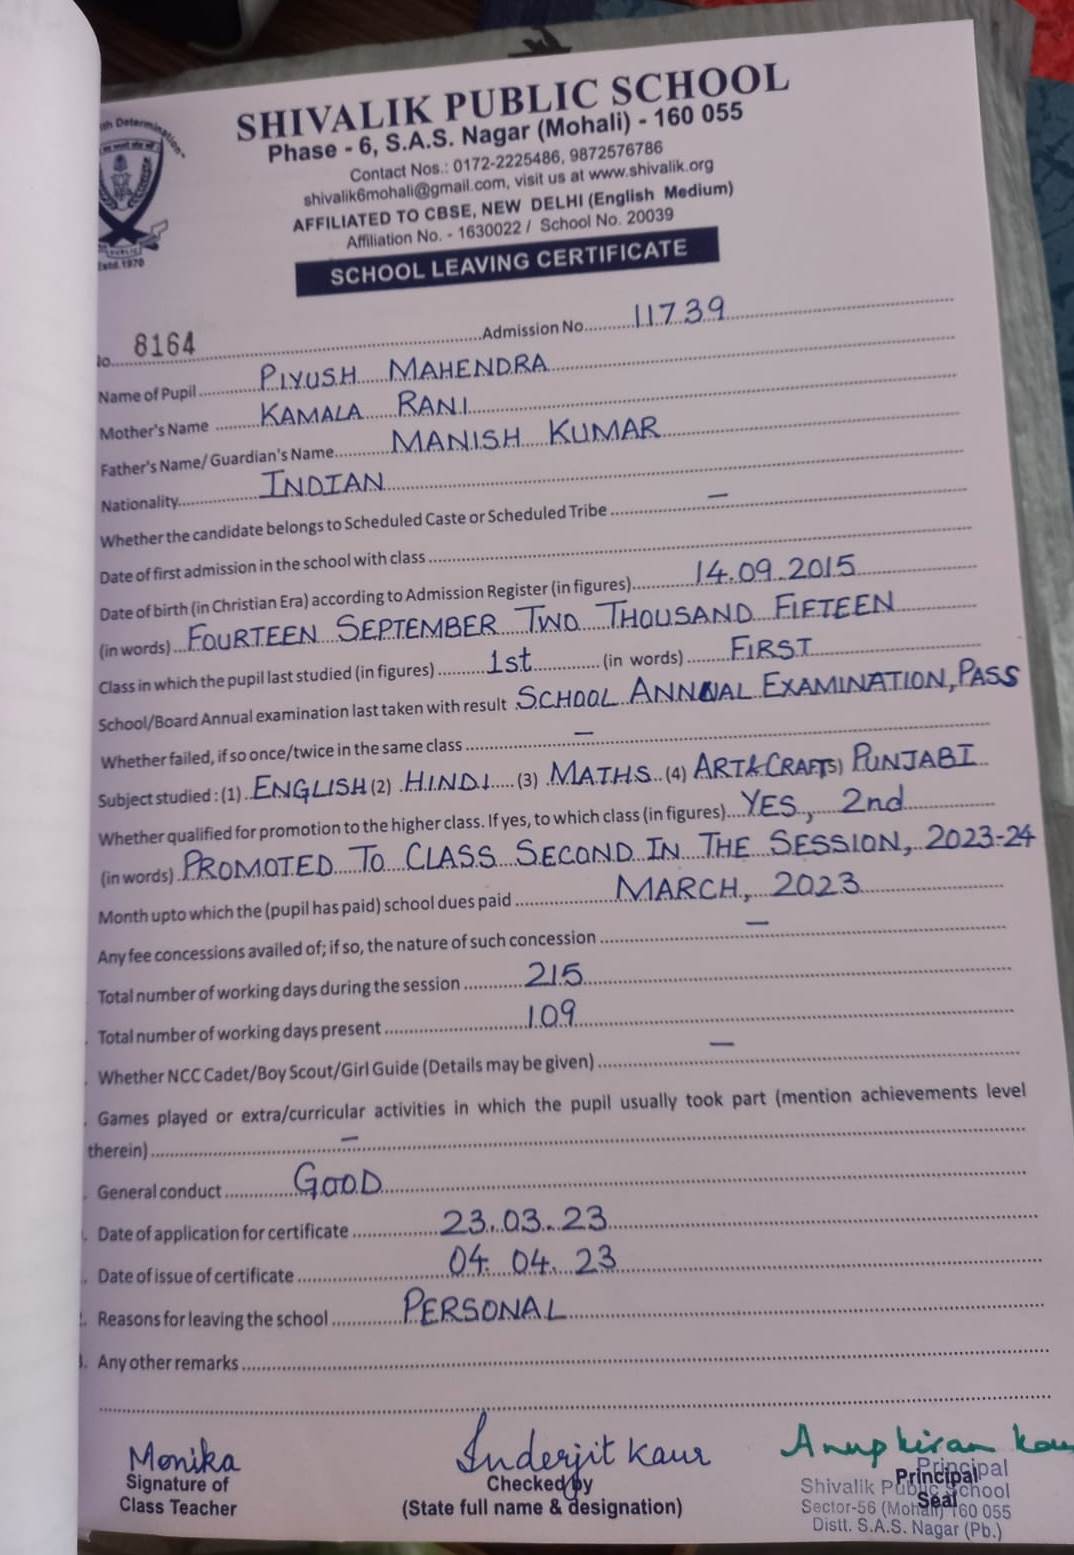 SHIVALIK PUBLIC SCHOOL
Phase - 6, S.A.S. Nagar (Mohali) - 160 055
Contact Nos.: 0172-2225486, 9872576786
shivalik6mohali@gmail.com, visit us at www.shivalik.org
AFFILIATED TO CBSE, NEW DELHI (English Medium)
Affiliation No. - 1630022 / School No. 20039
Determination
Estd. 1970
SCHOOL LEAVING CERTIFICATE
8164 Admission No. 11739
Name of Pupil PIYUSH MAHENDRA
Mother's Name KAMALA RANI
Father's Name/ Guardian's Name MANISH KUMAR
Nationality INDIAN
Whether the candidate belongs to Scheduled Caste or Scheduled Tribe —
Date of first admission in the school with class
Date of birth (in Christian Era) according to Admission Register (in figures) 14.09.2015
(in words) FOURTEEN SEPTEMBER TWO THOUSAND FIFTEEN
Class in which the pupil last studied (in figures) 1st (in words) FIRST
School/Board Annual examination last taken with result SCHOOL ANNUAL EXAMINATION, PASS
Whether failed, if so once/twice in the same class —
Subject studied : (1) ENGLISH (2) HINDI (3) MATHS (4) ART&CRAFTS) PUNJABI
Whether qualified for promotion to the higher class. If yes, to which class (in figures) YES, 2nd
(in words) PROMOTED TO CLASS SECOND IN THE SESSION, 2023-24
Month upto which the (pupil has paid) school dues paid MARCH, 2023
Any fee concessions availed of; if so, the nature of such concession —
Total number of working days during the session 215
Total number of working days present 109
Whether NCC Cadet/Boy Scout/Girl Guide (Details may be given) —
Games played or extra/curricular activities in which the pupil usually took part (mention achievements level
therein) —
General conduct GOOD
Date of application for certificate 23.03.23
Date of issue of certificate 04.04.23
Reasons for leaving the school PERSONAL
Any other remarks
Monika Inderjit Kaur Anupkiran
Signature of Checked by Principal
Class Teacher (State full name & designation) Seal
Principal
Shivalik Public School
Sector-56 (Mohali) 160 055
Distt. S.A.S. Nagar (Pb.)